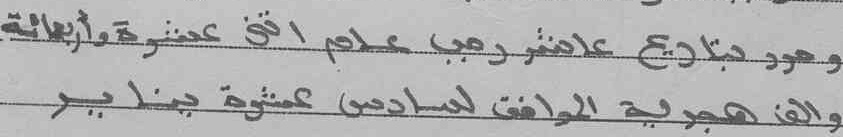 وحرر بتاريخ عاشر رجب عام اثني عشرة وأربعمائة
والف هجرية الموافق لسادس عشرة يناير